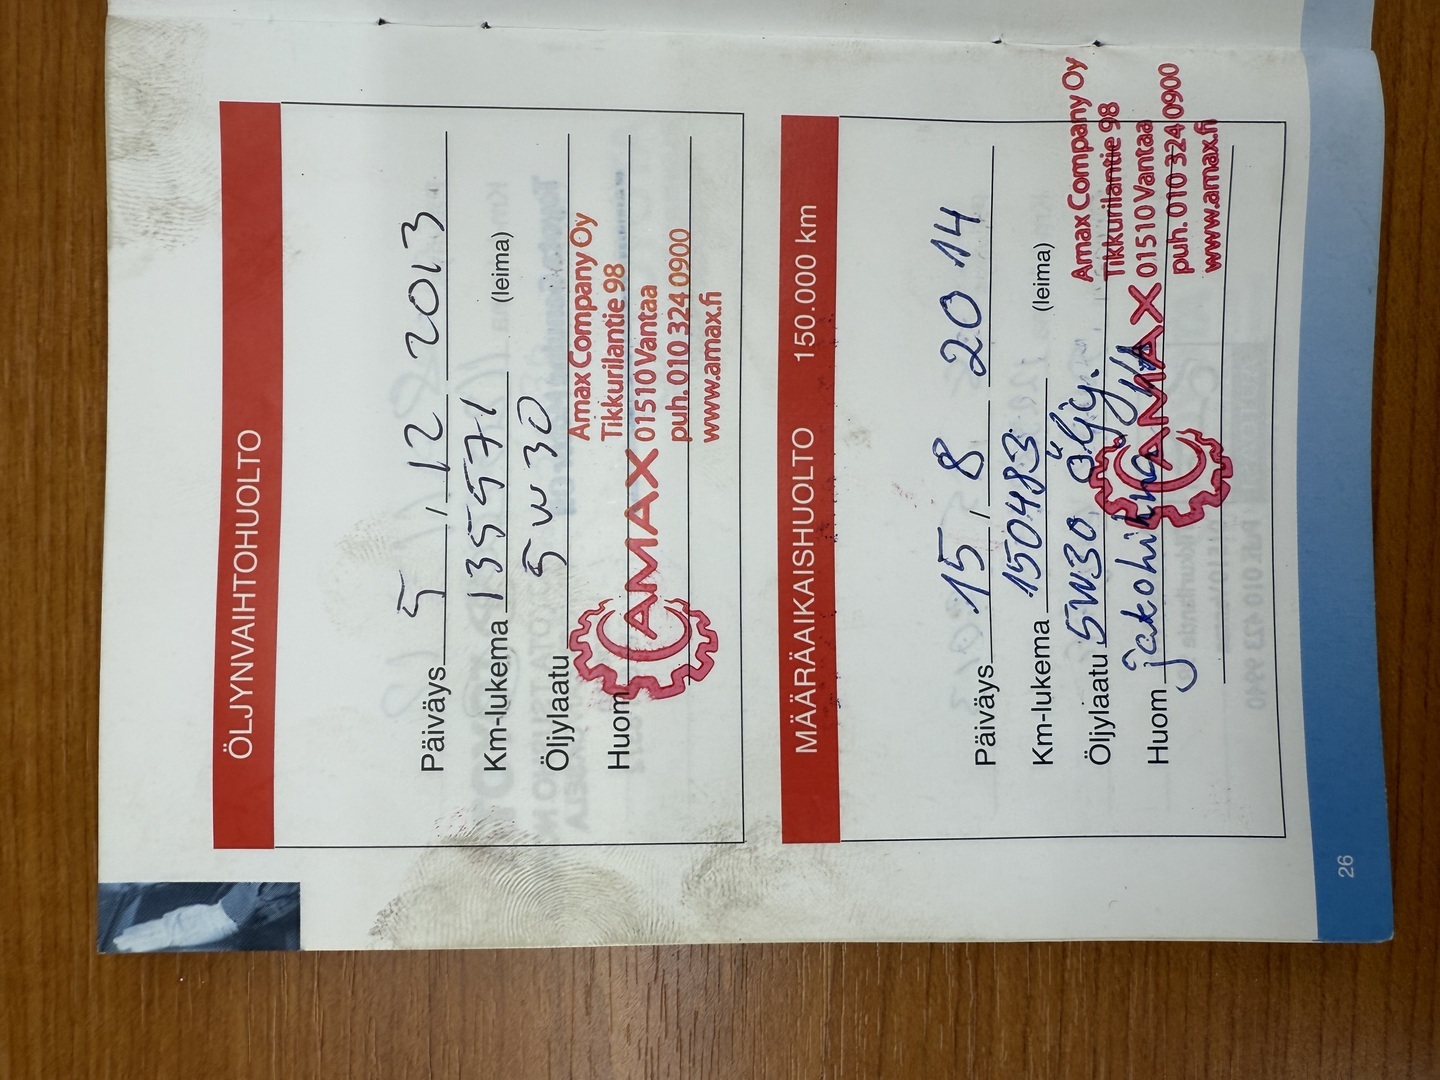 ÖLJYNVAIHTOHUOLTO
Päiväys 5 / 12 2013
Km-lukema 135571 (leima)
Öljylaatu 5w30
Huom
AMAX
Amax Company Oy
Tikkurilantie 98
01510 Vantaa
puh. 010 324 0900
www.amax.fi
MÄÄRÄAIKAISHUOLTO 150.000 km
Päiväys 15 / 8 2014
Km-lukema 150483 (leima)
Öljylaatu 5W30 öljy.
Huom jakohihna
AMAX
Amax Company Oy
Tikkurilantie 98
01510 Vantaa
puh. 010 324 0900
www.amax.fi
26